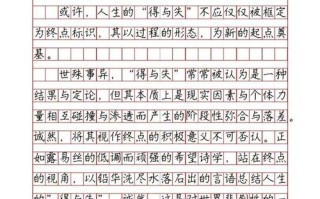 或许，人生的“得与失”不应仅仅被框定
为终点标识，其以过程的形态，为新的起点奠
基。
世殊事异，“得与失”常常被认为是一种
结果与定论，但其本质上是现实因素与个体力
量相互碰撞与渗透而产生的阶段性弥合与落差。
诚然，将其视作终点的积极意义不可否认。正
如露易丝的低调而顽强的希望诗学，站在终点
的视角，以铅华洗尽水落石出的言语总结人生
的“得与失”